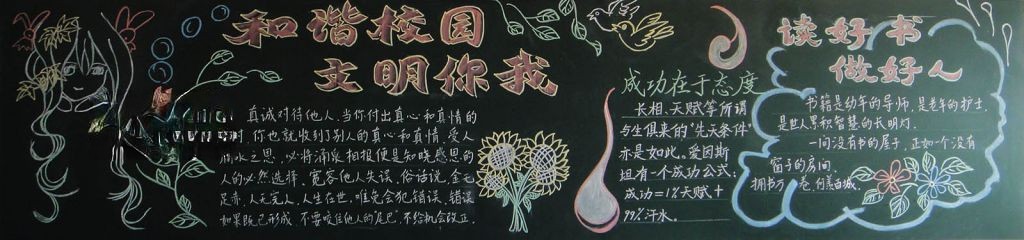 和谐校园
文明你我
真诚对待他人.当你付出真心和真情的
时,你也就收到了别人的真心和真情.受人
滴水之恩,必将涌泉相报便是知晓感恩的
人的必然选择.宽容他人失误.俗话说,金无
足赤,人无完人,人生在世.唯免会犯错误.错误
如果既已形成,不要咬住他人的尾巴,不给机会改正.
成功在于态度
长相、天赋等所谓
与生俱来的“先天条件”
亦是如此。爱因斯
坦有一个成功公式:
成功=1%天赋+
99%汗水。
读好书
做好人
书籍是幼年的导师,是老年的护士,
是世人累积智慧的长明灯.
一间没有书的屋子,正如一个没有
窗子的房间.
拥书万卷,何假百城.